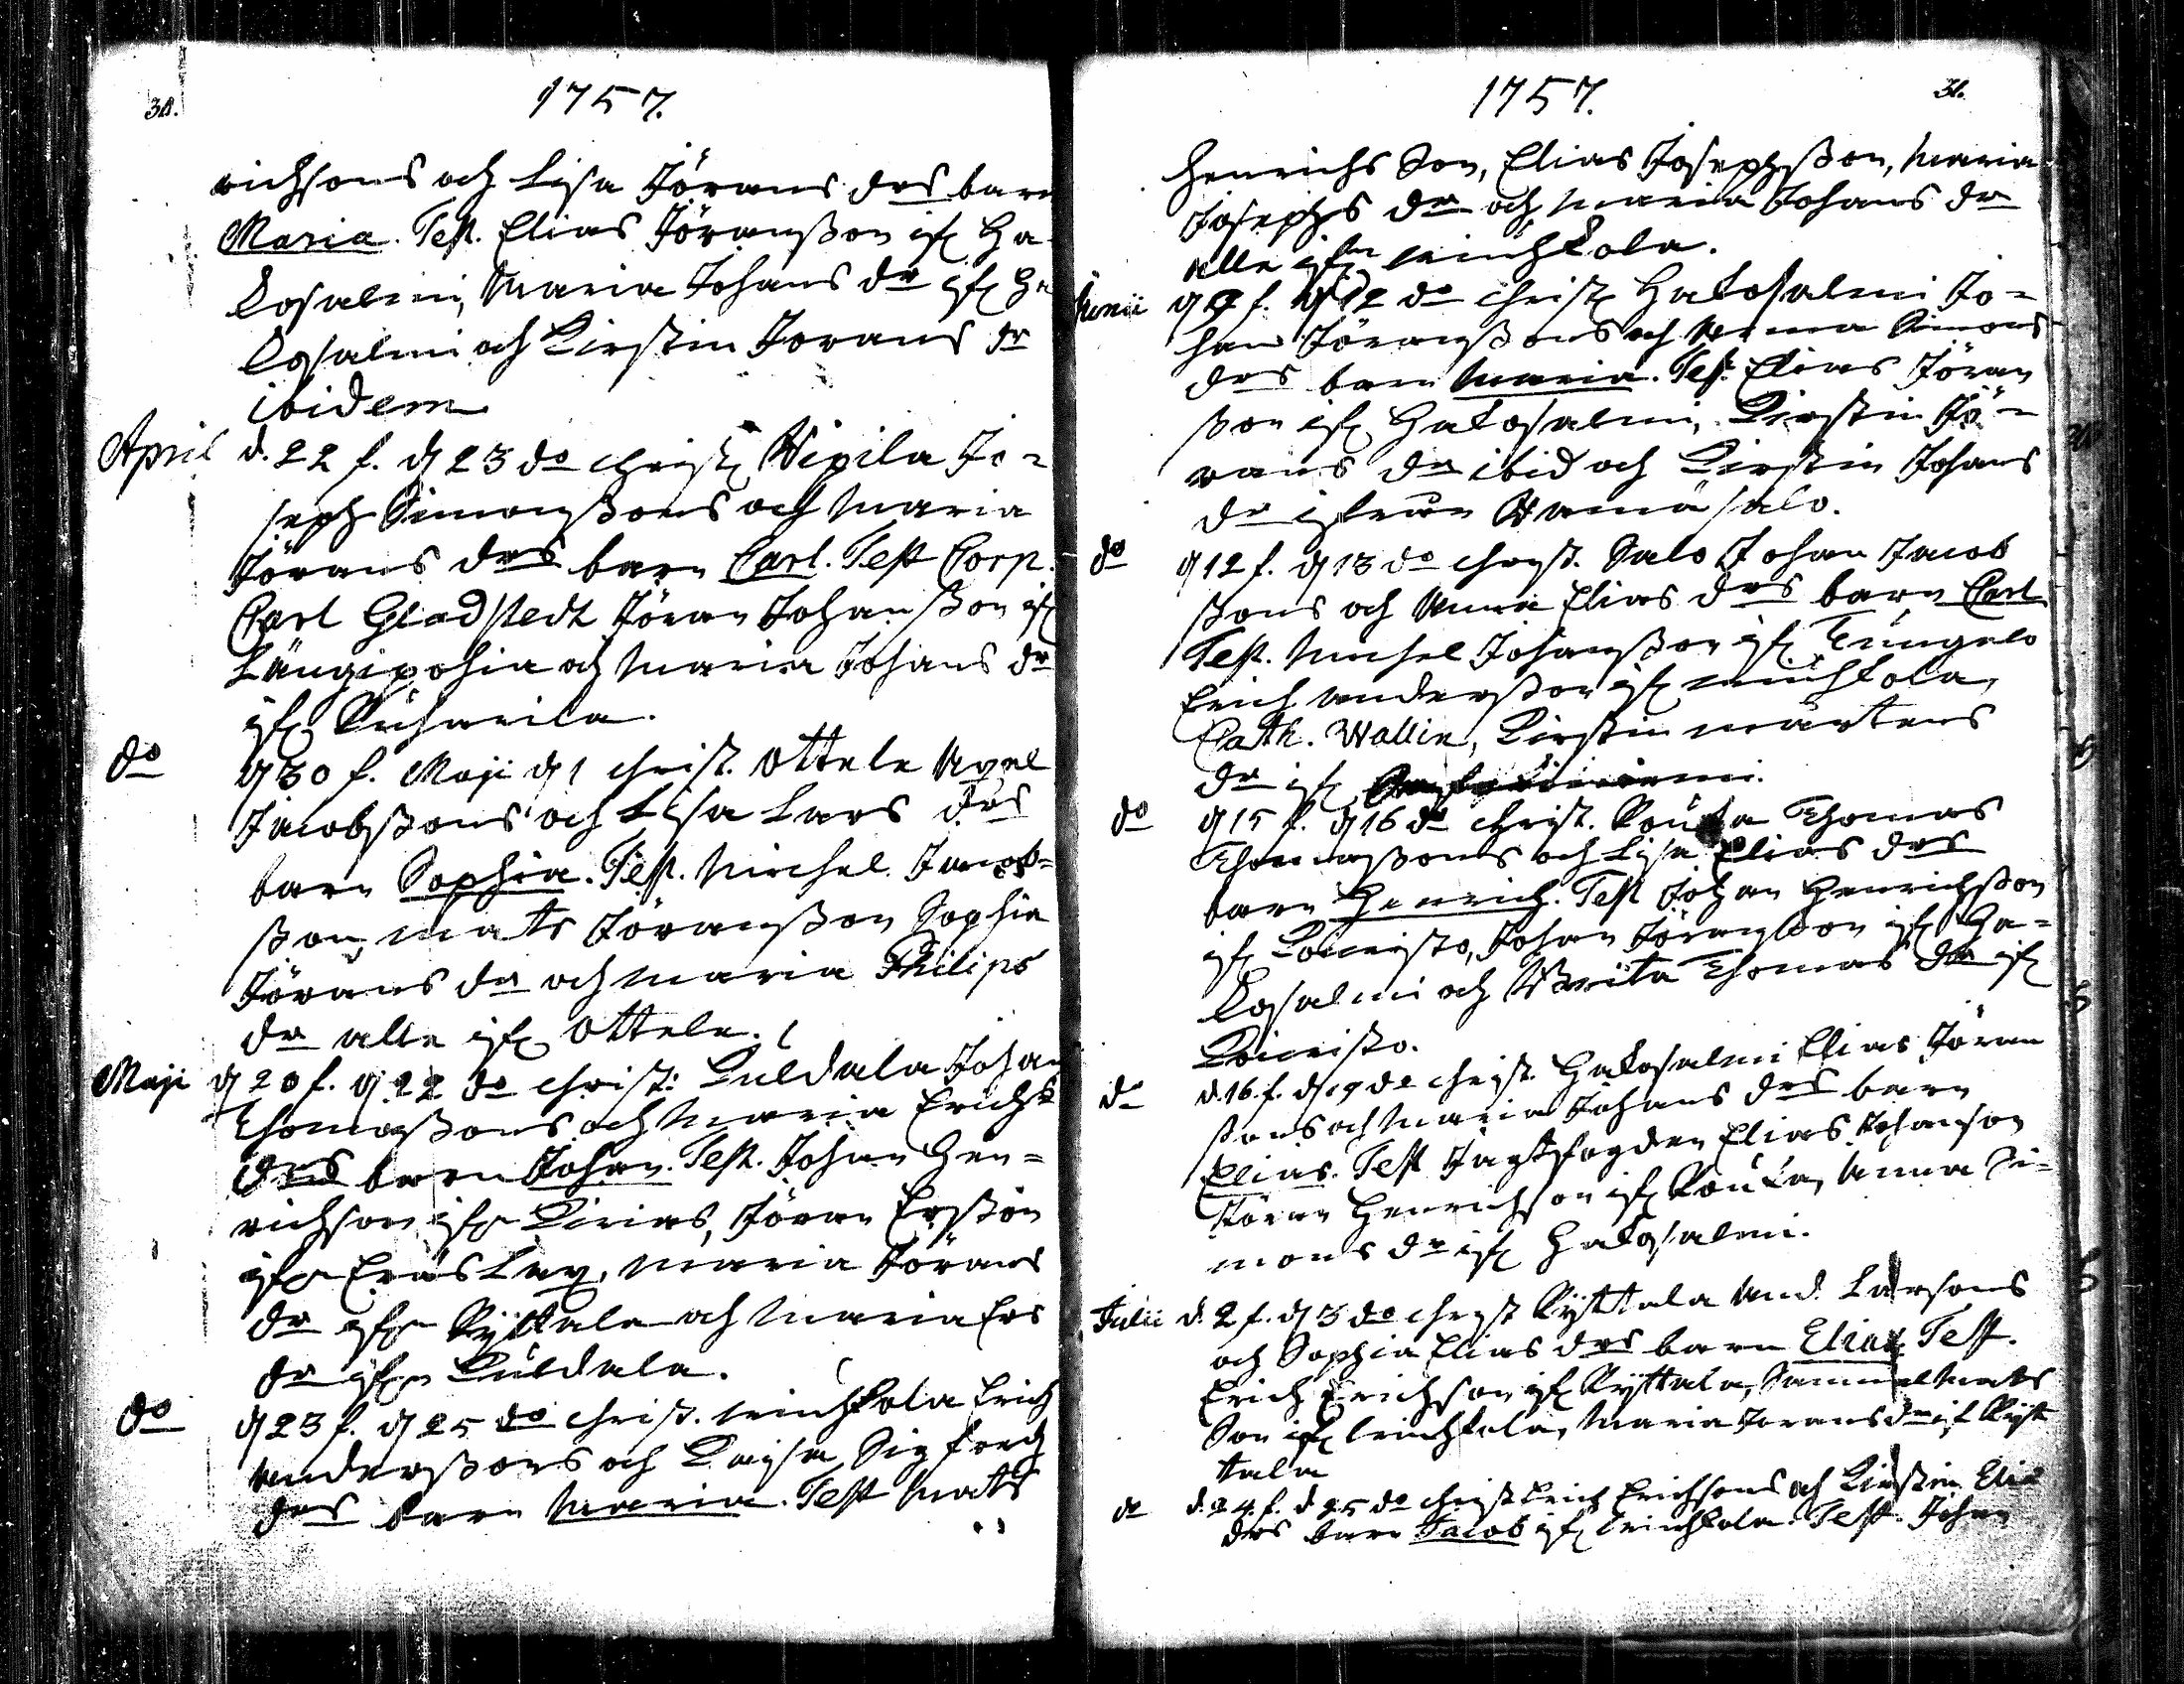 30.
1757.
richsons och Lisa Jörans drs barn
Maria. Test. Elias Jöransson ifr Ha-
kosalmi, Maria Johans dr ifr Ha
kosalmi och Kirstin Jorans dr
ibidem
April d. 22 f. d 23 do christ Wipila Jo=
seph Simonssons och Maria
Jörans drs barn Carl. Test Corp.
Carl Gladstedt Jöran Johansson ifr
Längipohia och Maria Johans dr
ifr
do d 30 f. Maji d 1 christ. Ottela Axel
Jacobssons och Lisa Lars drs
barn Sophia. Test. Michel Jacob=
sson, Mats Jöransson Sophia
Jörans dr och Maria Philips
dr alla ifr Ottela.
Maji d 20 f. d 22 do christ: Luldala Johan
Thomassons och Maria Erichs
drs barn Johan. Test. Johan Hen=
richson ifr Kirias, Jöran Ersson
ifr Maria Jörans
dr ifr Kyttala och Maria Ers
dr ifr Luldala.
do d 23 f. d 25 do christ. Leinkkola Erich
Anderssons och Kaisa Sigfreds
drs barn Maria. Test Mats
1757.
31.
Henrichs Son, Elias Josephsson, Maria
Josephs dr och Maria Johans dr
alla ifrn Leinkkola.
Junii d 9 f. d 12 do christ Hakosalmi Jo=
han Jöranssons och Anna Simons
drs barn Maria. Test. Elias Jöran
sson ifr Hakosalmi, Kirstin Jö=
rans dr ibid och Kirstin Johans
dr ifrån
do d 12 f. d 13 do christ. Salo Johan Jacob
ssons och Anna Elias drs barn Carl
Test. Michel Johansson ifr Tungelo
Erich Andersson ifr Leinkkola,
Cath. Wallin, Kirstin Mårtens
dr ifr
do d 15 f. d 16 do christ. Rouka Thomas
Thomassons och Lisa Elias drs
barn Henrich. Test Johan Henrichsson
ifr Koivisto, Johan Jöransson ifr Ha=
kosalmi och Brita Thomas dr ifr
Koivisto.
do d. 16. f. d 19 do christ. Hakosalmi Elias Jöran
ssons och Maria Johans drs barn
Elias. Test Jagtfogden Elias Johanson
Jöran Henrichson ifr Rouka, Anna Si=
mons dr ifr Hakosalmi.
Julii d. 2 f. d 3 do christ Kyttala And. Larsons
och Sophia Elias drs barn Elias Test.
Erich Erichson ifr Kyttala, Samuel Mats
Son ifr Leinkkola, Maria Jorans dr ifr Kyt
tala
do d. 24. f. d 25 do christ Erich Erichsons och Kirstin Elia
drs barn Jacob ifr Leinkkola. Test. Johan